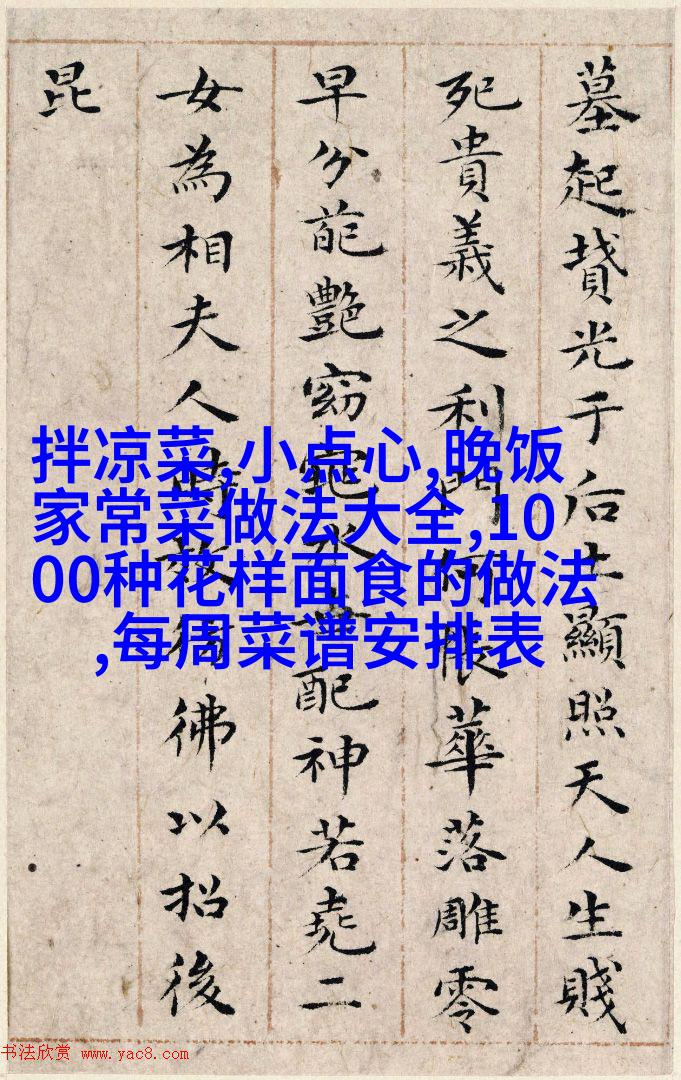 墓起墳光于后土顯照天人生賤
死貴義之利門何悵華落雕零
早分葩艷窈窕永世配神若堯二
女為相夫人時效彷彿以招後
昆
拌凉菜,小点心,晚饭
家常菜做法大全,10
00种花样面食的做法
,每周菜谱安排表
书法欣赏 www.yac8.com